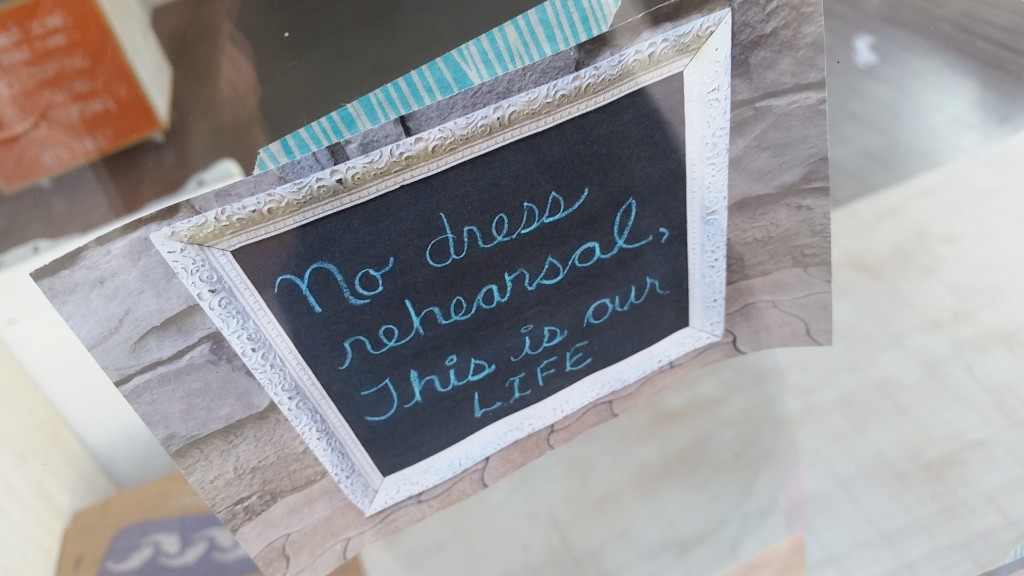 No dress
rehearsal,
This is our
LIFE